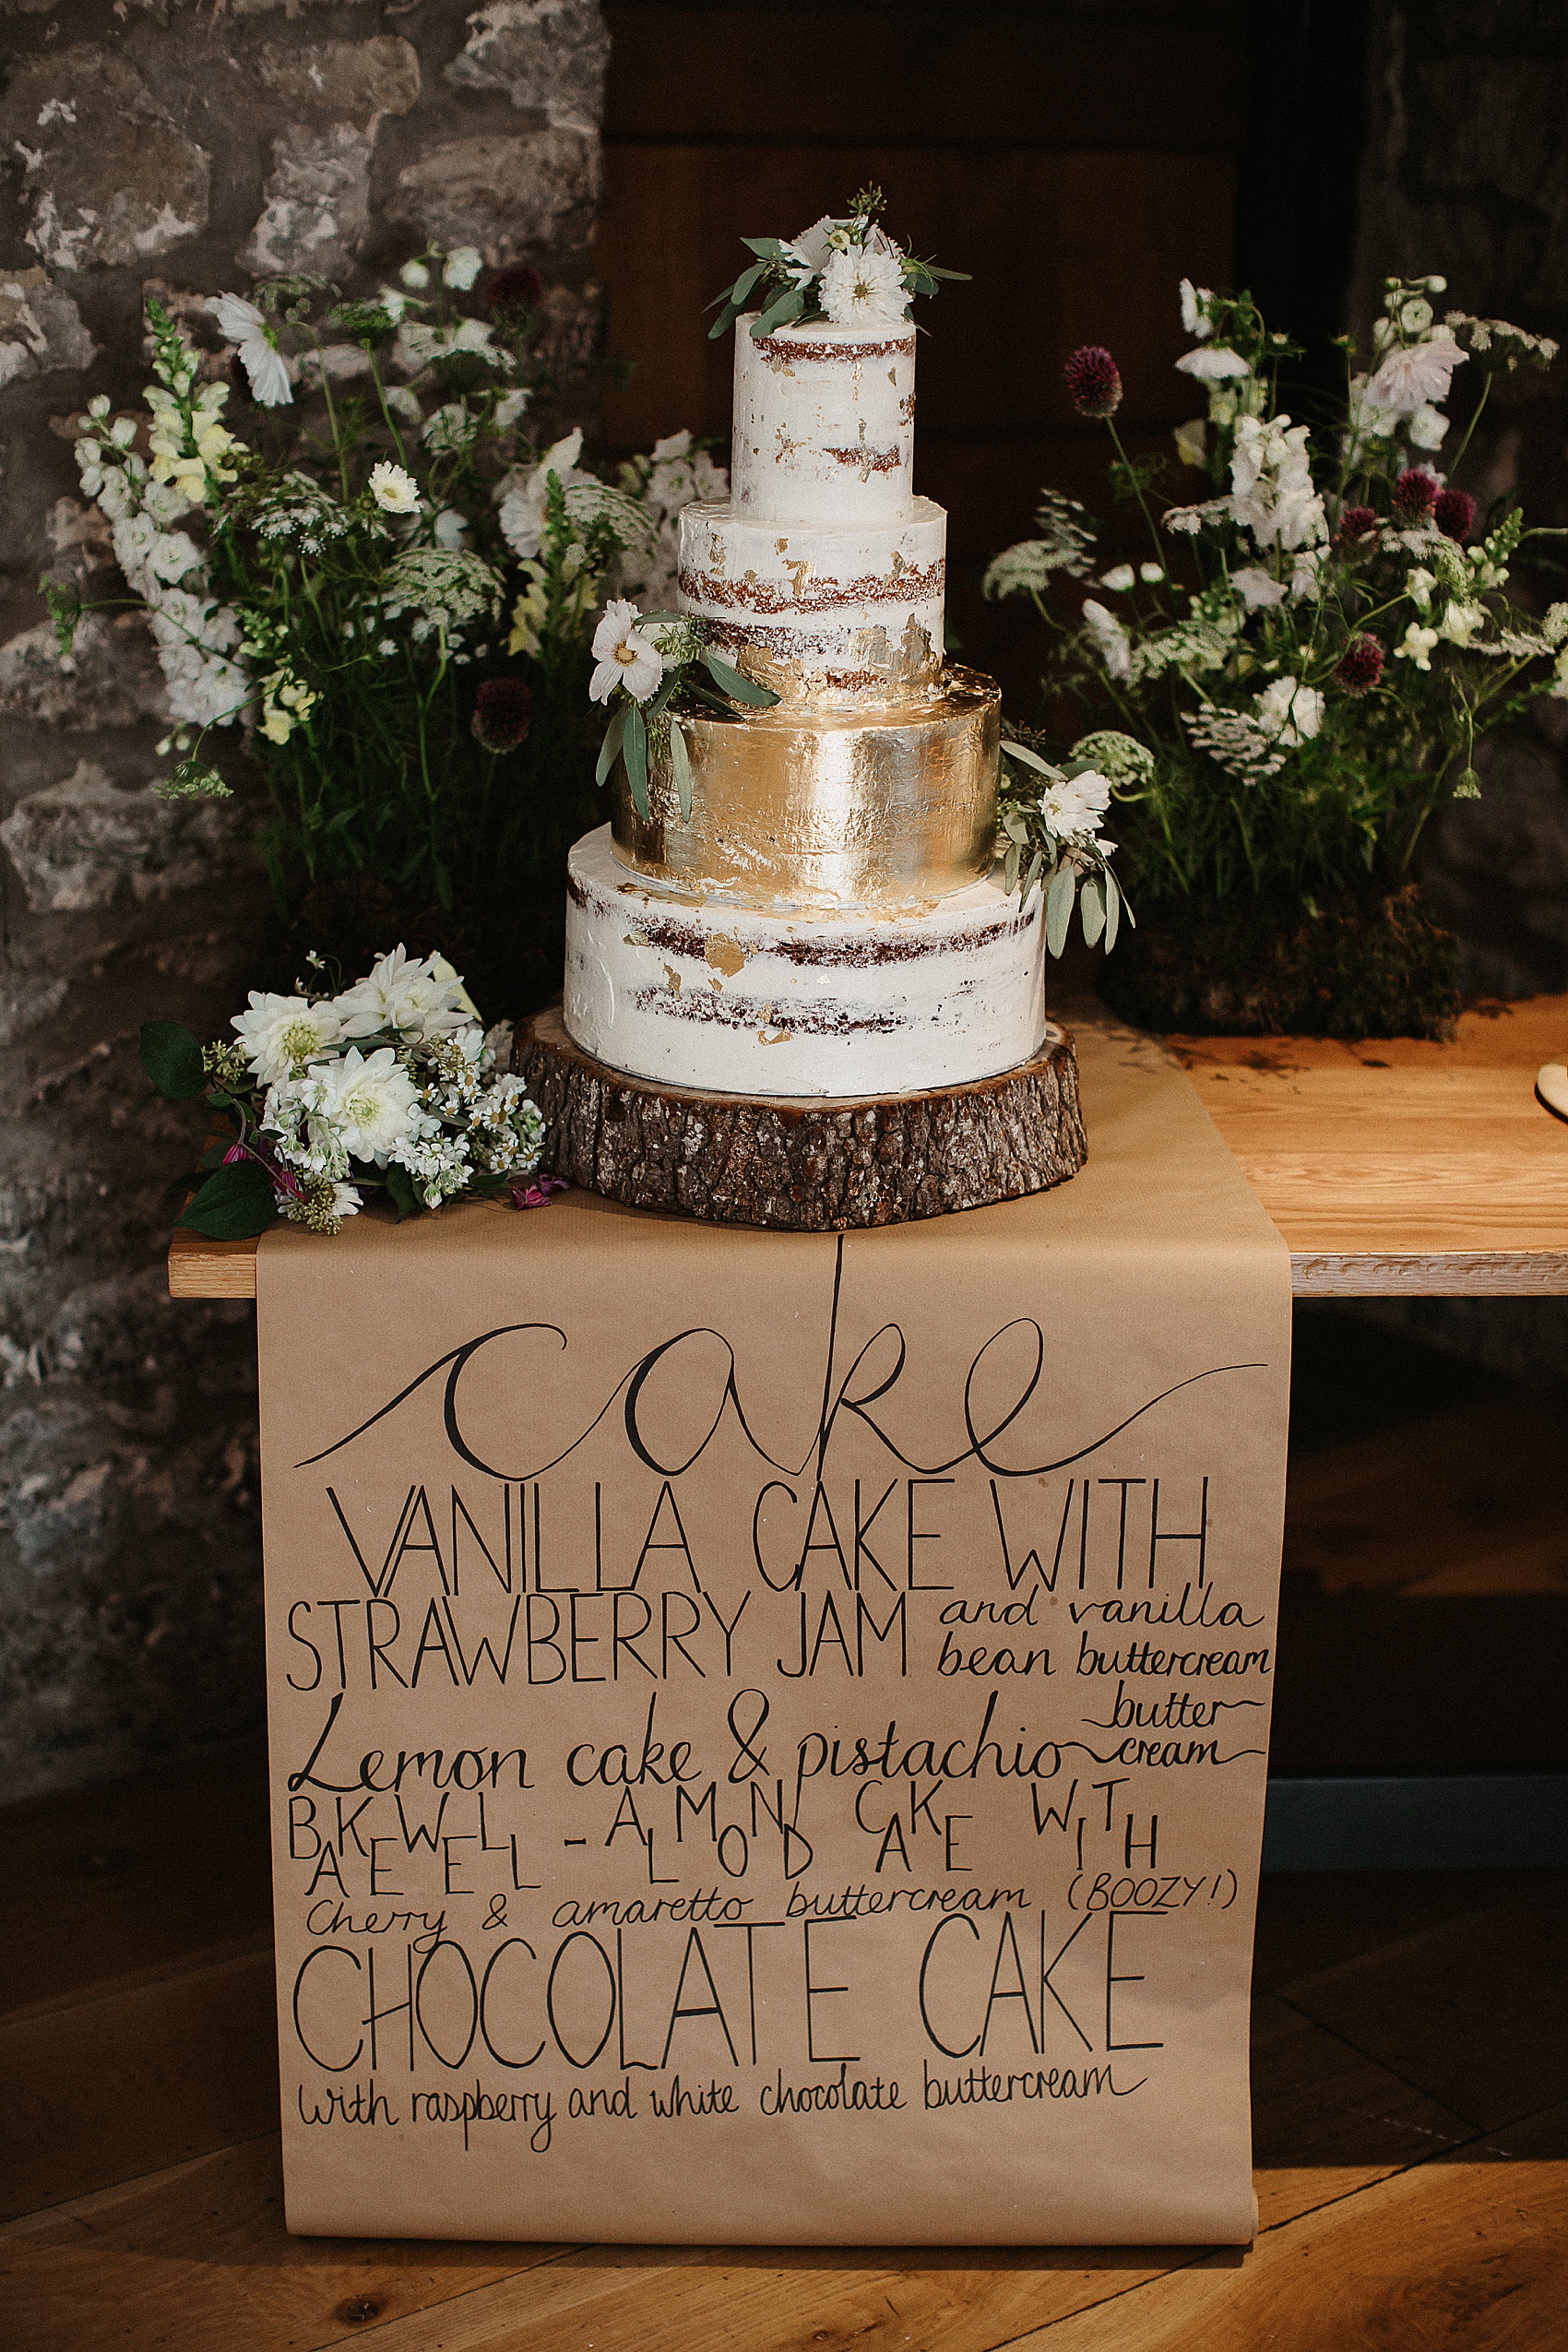 cake
VANILLA CAKE WITH
STRAWBERRY JAM and vanilla
bean buttercream
Lemon cake & pistachio butter
cream
BAKEWELL - ALMOND CAKE WITH
Cherry & amaretto buttercream (BOOZY!)
CHOCOLATE CAKE
with raspberry and white chocolate buttercream